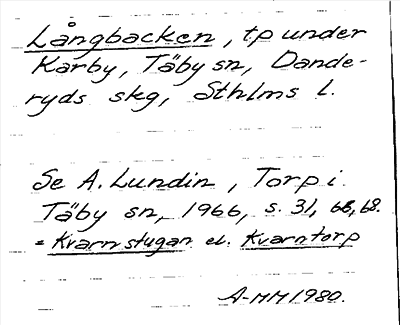 Långbacken, tp under
Karby, Täby sn, Dande-
ryds skg, Sthlms l.
Se A. Lundin, Torp i
Täby sn, 1966, s. 31, 66, 68.
= Kvarnstugan el. Kvarntorp
A-MM 1980.